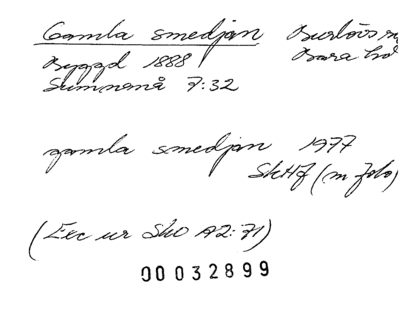 Gamla smedjan Burlövs
Byggd 1888 Bara
7:32
gamla smedjan 1977
SkHf (m foto)
(Exc ur SkO A2:71)
00032899